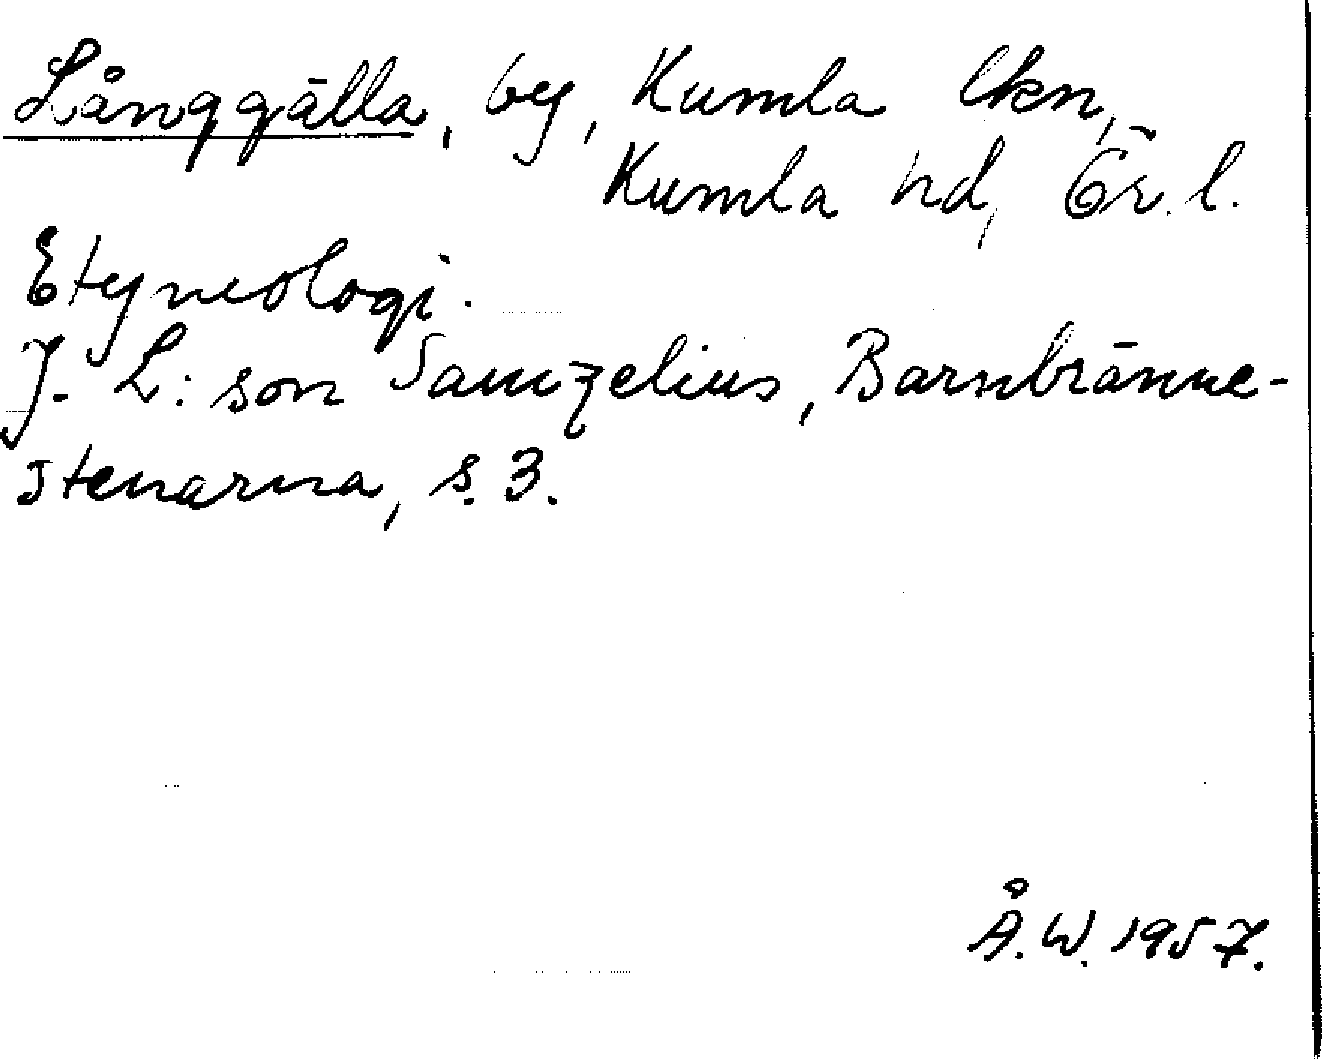 Långgälla, by, Kumla lkn,
Kumla hd, Ör. l.
Etymologi.
J. L:son Samzelius, Barnbränne-
stenarna, s. 3.
Å.W. 1957.